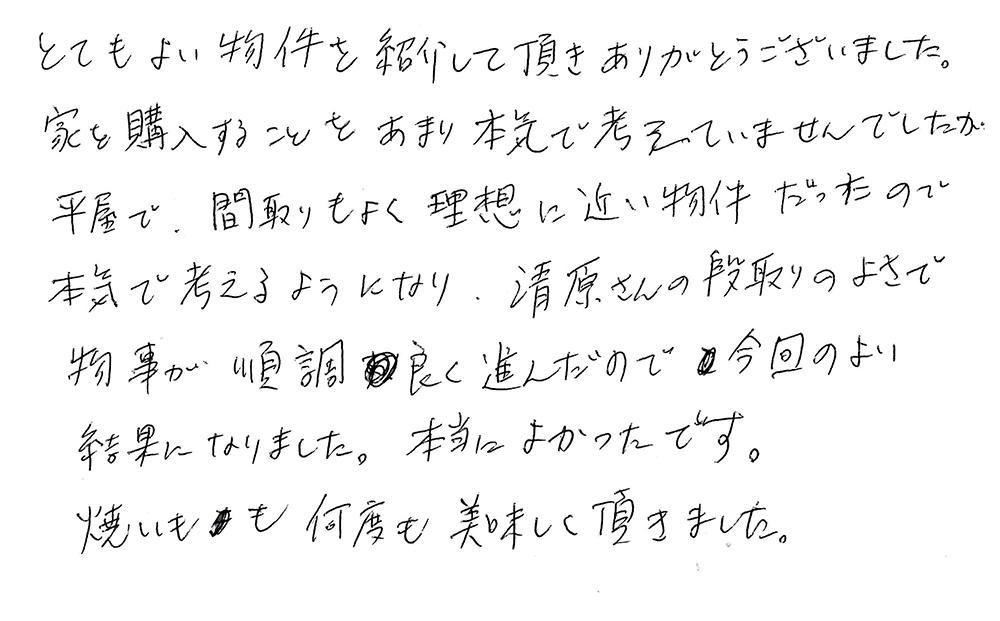 とてもよい物件を紹介して頂きありがとうございました。
家を購入することをあまり本気で考えていませんでしたが
平屋で、間取りもよく理想に近い物件だったので
本気で考えるようになり、清原さんの段取りのよさで
物事が順調良く進んだので今回のよい
結果になりました。本当によかったです。
焼いもも何度も美味しく頂きました。